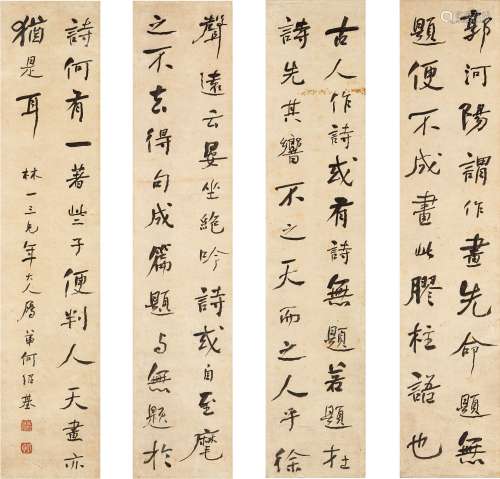 郭河陽謂作畫先命題無
題便不成畫此膠柱語也
古人作詩或有詩無題若題在
詩先其響不之天而之人乎徐
聲遠云晏坐絶吟詩或自至麾
之不去得句成篇題与無題於
詩何有一著些子便判人天畫亦
猶是耳
林一三兄年大人屬弟何紹基